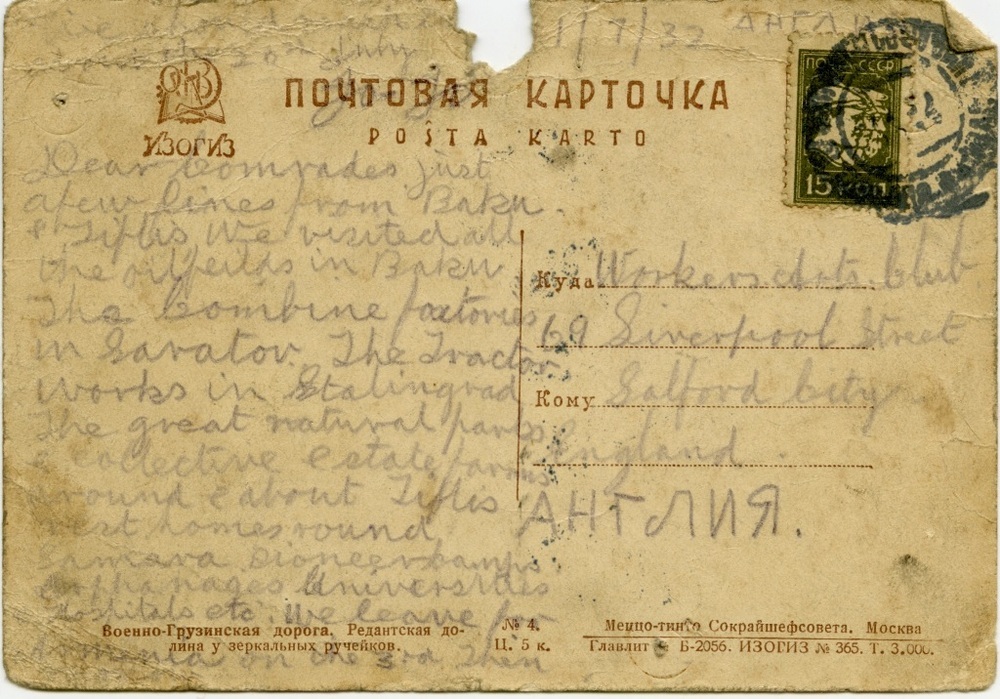 We
1/7/32 АНГЛИ
20th July
ПОЧТА СССР
15 КОП
ИЗОГИЗ
ПОЧТОВАЯ КАРТОЧКА
POŜTA KARTO
Dear Comrades just
a few lines from Baku
& Tiflis We visited all
the oilfeilds in Baku
The Combine factories
in Saratov. The Tractor
Works in Stalingrad
The great natural parks
& collective & state farms
around & about Tiflis
rest homes round
Samara Pioneer camps
orphanages Universities
Hospitals etc. We leave for
Armenia on the 3rd Then
Куда Workers Club
69 Liverpool Street
Кому Salford City
England
АНГЛИЯ.
Военно-Грузинская дорога. Редантская до-
лина у зеркальных ручейков.
№ 4.
Ц. 5 к.
Меццо-тинто Сокрайшефсовета. Москва
Главлит № Б-2056. ИЗОГИЗ № 365. Т. 3.000.